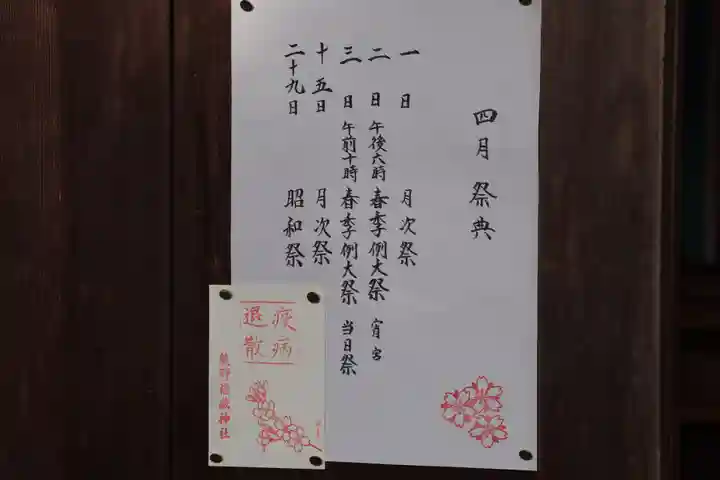 四月祭典
一日 月次祭
二日 午後六時 春季例大祭 宵宮
三日 午前十時 春季例大祭 当日祭
十五日 月次祭
二十九日 昭和祭
疫病
退散
神社